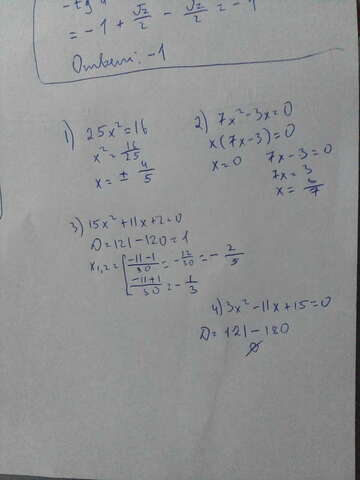 -tg
= -1 + √2/2 - √2/2 = -1
Ответ: -1
1) 25x² = 16
x² = 16/25
x = ± 4/5
2) 7x² - 3x = 0
x(7x - 3) = 0
x = 0 7x - 3 = 0
7x = 3
x = 3/7
3) 15x² + 11x + 2 = 0
D = 121 - 120 = 1
x₁,₂ = [ (-11 - 1)/30 = -12/30 = -2/5
(-11 + 1)/30 = -1/3
4) 3x² - 11x + 15 = 0
D = 121 - 180
∅